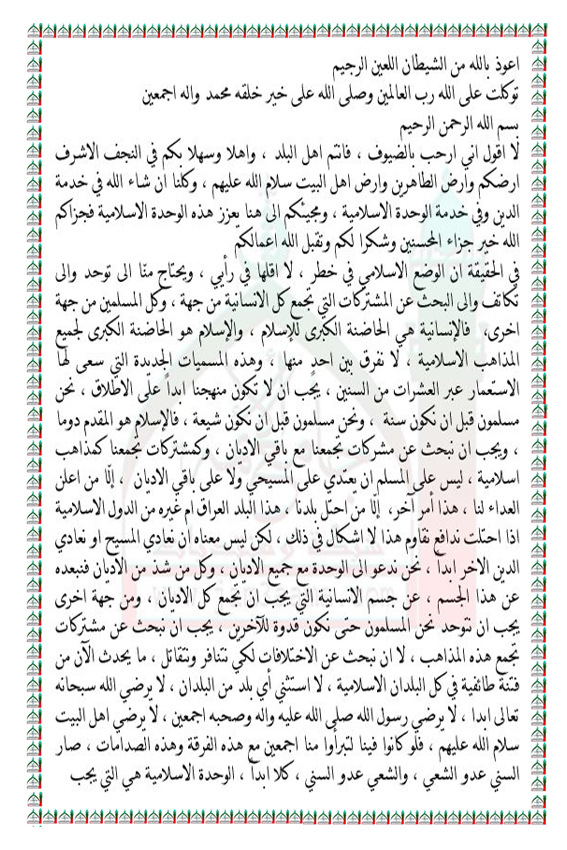 اعوذ بالله من الشيطان اللعين الرجيم
توكلت على الله رب العالمين وصلى الله على خير خلقه محمد واله اجمعين
بسم الله الرحمن الرحيم
لا اقول اني ارحب بالضيوف ، فانتم اهل البلد ، واهلا وسهلا بكم في النجف الاشرف
ارضكم وارض الطاهرين وارض اهل البيت سلام الله عليهم ، وكلنا ان شاء الله في خدمة
الدين وفي خدمة الوحدة الاسلامية ، ومجيئكم الى هنا يعزز هذه الوحدة الاسلامية فجزاكم
الله خير جزاء المحسنين وشكرا لكم وتقبل الله اعمالكم
في الحقيقة ان الوضع الاسلامي في خطر ، لا اقلها في رأيي ، ويحتاج منّا الى توحد والى
تكاتف والى البحث عن المشتركات التي تجمع كل الانسانية من جهة ، وكل المسلمين من جهة
اخرى، فالإنسانية هي الحاضنة الكبرى للإسلام ، والإسلام هو الحاضنة الكبرى لجميع
المذاهب الاسلامية ، لا نفرق بين احدٍ منها ، وهذه المسميات الجديدة التي سعى لها
الاستعمار عبر العشرات من السنين ، يجب ان لا تكون منهجنا ابداً على الاطلاق ، نحن
مسلمون قبل ان نكون سنة ، ونحن مسلمون قبل ان نكون شيعة ، فالإسلام هو المقدم دوما
، ويجب ان نبحث عن مشركات تجمعنا مع باقي الاديان ، وكمشتركات تجمعنا كمذاهب
اسلامية ، ليس على المسلم ان يعتدي على المسيحي ولا على باقي الاديان ، إلّا من اعلن
العداء لنا ، هذا أمر آخر، إلّا من احتل بلدنا ، هذا البلد العراق ام غيره من الدول الاسلامية
اذا احتلت ندافع نقاوم هذا لا اشكال في ذلك ، لكن ليس معناه ان نعادي المسيح او نعادي
الدين الاخر ابداً ، نحن ندعو الى الوحدة مع جميع الاديان ، وكل من شذ من الاديان فنبعده
عن هذا الجسم ، عن جسم الانسانية التي يجب ان تجمع كل الاديان ، ومن جهة اخرى
يجب ان نتوحد نحن المسلمون حتى نكون قدوة للآخرين ، يجب ان نبحث عن مشتركات
تجمع هذه المذاهب ، لا ان نبحث عن الاختلافات لكي نتنافر ونتقاتل ، ما يحدث الآن من
فتنة طائفية في كل البلدان الاسلامية ، لا استثني أي بلد من البلدان ، لا يرضي الله سبحانه
تعالى ابدا ، لا يرضي رسول الله صلى الله عليه واله وصحبه اجمعين ، لا يرضي اهل البيت
سلام الله عليهم ، فلو كانوا فينا لتبرأوا منا اجمعين مع هذه الفرقة وهذه الصدامات ، صار
السني عدو الشعي ، والشعي عدو السني ، كلا ابداً ، الوحدة الاسلامية هي التي يجب